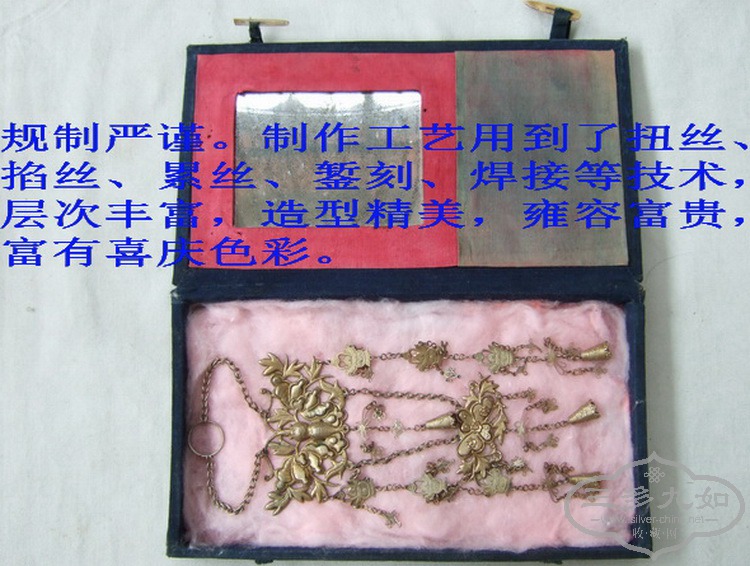 规制严谨。制作工艺用到了扭丝、
掐丝、累丝、錾刻、焊接等技术，
层次丰富，造型精美，雍容富贵，
富有喜庆色彩。
三多九如
www.silver-china.net
收·藏·图